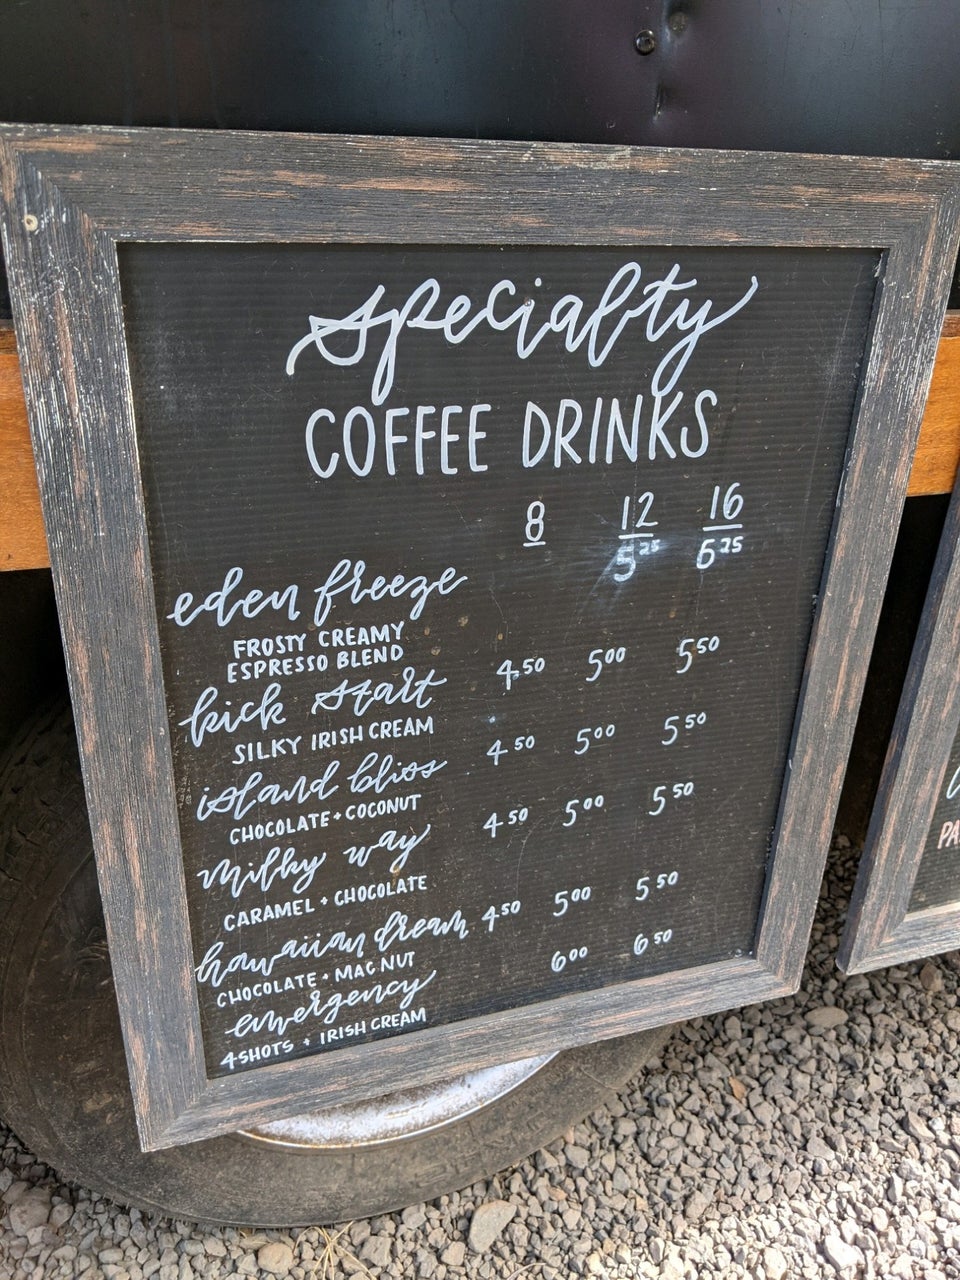 specialty
COFFEE DRINKS
8 12 16
eden freeze 5.25 6.25
FROSTY CREAMY
ESPRESSO BLEND
kick start 4.50 5.00 5.50
SILKY IRISH CREAM
island bliss 4.50 5.00 5.50
CHOCOLATE + COCONUT
milky way 4.50 5.00 5.50
CARAMEL + CHOCOLATE
hawaiian dream 4.50 5.00 5.50
CHOCOLATE + MAC NUT
emergency 6.00 6.50
4 SHOTS + IRISH CREAM
PA